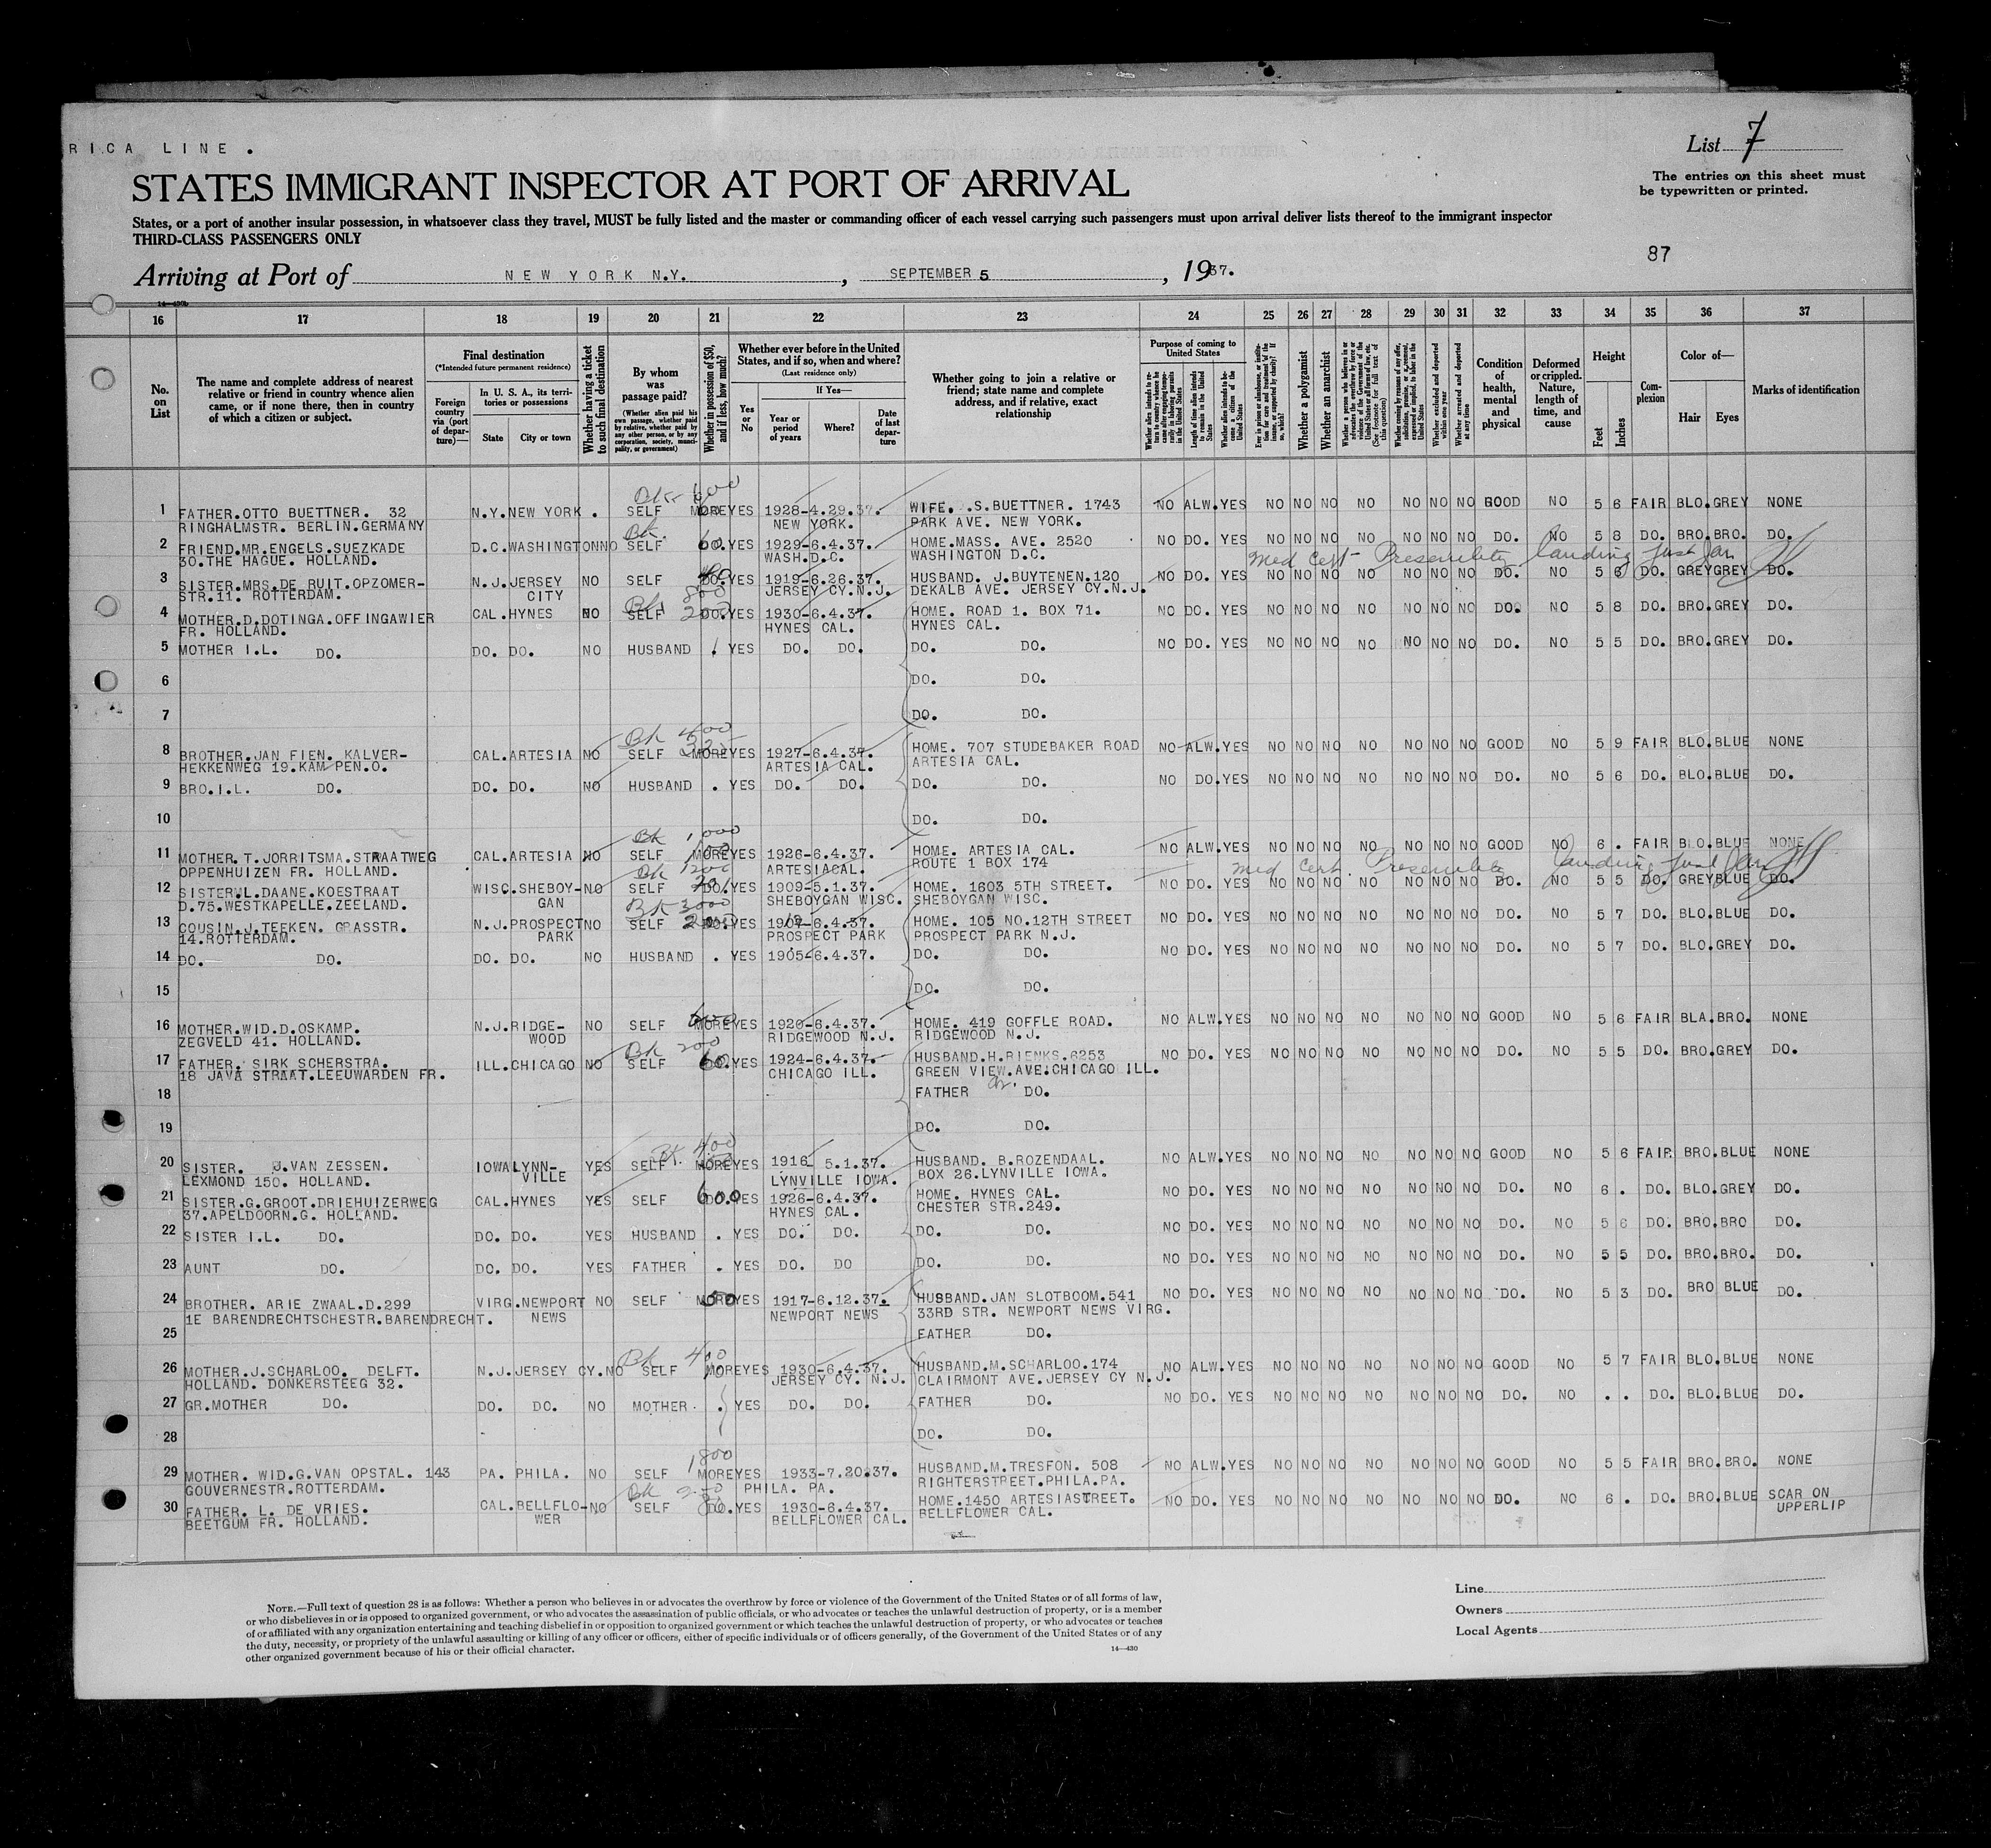 RICA LINE .
List 7
STATES IMMIGRANT INSPECTOR AT PORT OF ARRIVAL
The entries on this sheet must
be typewritten or printed.
States, or a port of another insular possession, in whatsoever class they travel, MUST be fully listed and the master or commanding officer of each vessel carrying such passengers must upon arrival deliver lists thereof to the immigrant inspector
THIRD-CLASS PASSENGERS ONLY
87
Arriving at Port of NEW YORK N.Y. , SEPTEMBER 5 , 1937.
16 17 18 19 20 21 22 23 24 25 26 27 28 29 30 31 32 33 34 35 36 37
No. on List
The name and complete address of nearest relative or friend in country whence alien came, or if none there, then in country of which a citizen or subject.
Final destination
(*Intended future permanent residence)
Foreign country via (port of departure)—
In U. S. A., its territories or possessions
State City or town
Whether having a ticket to such final destination
By whom was passage paid?
(Whether alien paid his own passage, whether paid by relative, whether paid by any other person, or by any corporation, society, municipality, or government)
Whether in possession of $50, and if less, how much?
Whether ever before in the United States, and if so, when and where?
(Last residence only)
Yes or No
If Yes—
Year or period of years Where? Date of last departure
Whether going to join a relative or friend; state name and complete address, and if relative, exact relationship
Purpose of coming to United States
Whether a polygamist
Whether an anarchist
Whether excluded and deported within one year
Whether arrested and deported at any time
Condition of health, mental and physical
Deformed or crippled. Nature, length of time, and cause
Height
Feet Inches
Complexion
Color of—
Hair Eyes
Marks of identification
1 FATHER.OTTO BUETTNER. 32 N.Y. NEW YORK . SELF MORE YES 1928-4.29.37. WIFE. .S.BUETTNER. 1743 NO ALW. YES NO NO NO NO NO NO NO GOOD NO 5 6 FAIR BLO. GREY NONE
RINGHALMSTR. BERLIN.GERMANY NEW YORK. PARK AVE. NEW YORK.
2 FRIEND.MR.ENGELS.SUEZKADE D.C. WASHINGTON NO SELF DO. YES 1929-6.4.37. HOME.MASS. AVE. 2520 NO DO. YES NO NO NO NO NO NO NO DO. NO 5 8 DO. BRO. BRO. DO.
30.THE HAGUE. HOLLAND. WASH.D.C. WASHINGTON D.C.
3 SISTER.MRS.DE RUIT.OPZOMER- N.J. JERSEY NO SELF DO. YES 1919-6.26.37. HUSBAND. J.BUYTENEN.120 NO DO. YES NO NO NO NO NO NO NO DO. NO 5 6 DO. GREY GREY DO.
STR.11. ROTTERDAM. CITY JERSEY CY.N.J. DEKALB AVE. JERSEY CY.N.J.
4 MOTHER.D.DOTINGA.OFFINGAWIER CAL. HYNES NO SELF DO. YES 1930-6.4.37. HOME. ROAD 1. BOX 71. NO DO. YES NO NO NO NO NO NO NO DO. NO 5 8 DO. BRO. GREY DO.
FR. HOLLAND. HYNES CAL. HYNES CAL.
5 MOTHER I.L. DO. DO. DO. NO HUSBAND . YES DO. DO. DO. DO. NO DO. YES NO NO NO NO NO NO NO DO. NO 5 5 DO. BRO. GREY DO.
6 DO. DO.
7 DO. DO.
8 BROTHER.JAN FIEN. KALVER- CAL. ARTESIA NO SELF MORE YES 1927-6.4.37. HOME. 707 STUDEBAKER ROAD NO ALW. YES NO NO NO NO NO NO NO GOOD NO 5 9 FAIR BLO. BLUE NONE
HEKKENWEG 19.KAMPEN.O. ARTESIA CAL. ARTESIA CAL.
9 BRO.I.L. DO. DO. DO. NO HUSBAND . YES DO. DO. DO. DO. NO DO. YES NO NO NO NO NO NO NO DO. NO 5 6 DO. BLO. BLUE DO.
10 DO. DO.
11 MOTHER.T.JORRITSMA.STRAATWEG CAL. ARTESIA NO SELF MORE YES 1926-6.4.37. HOME. ARTESIA CAL. NO ALW. YES NO NO NO NO NO NO NO GOOD NO 6 . FAIR BLO. BLUE NONE
OPPENHUIZEN FR. HOLLAND. ARTESIACAL. ROUTE 1 BOX 174
12 SISTER.L.DAANE.KOESTRAAT WISC. SHEBOY- NO SELF DO. YES 1909-5.1.37. HOME. 1603 5TH STREET. NO DO. YES NO NO NO NO NO NO NO DO. NO 5 5 DO. GREY BLUE DO.
D.75.WESTKAPELLE.ZEELAND. GAN SHEBOYGAN WISC. SHEBOYGAN WISC.
13 COUSIN.J.TEEKEN. GRASSTR. N.J. PROSPECT NO SELF DO. YES 1907-6.4.37. HOME. 105 NO.12TH STREET NO DO. YES NO NO NO NO NO NO NO DO. NO 5 7 DO. BLO. BLUE DO.
14.ROTTERDAM. PARK PROSPECT PARK PROSPECT PARK N.J.
14 DO. DO. DO. DO. NO HUSBAND . YES 1905-6.4.37. DO. DO. NO DO. YES NO NO NO NO NO NO NO DO. NO 5 7 DO. BLO. GREY DO.
15 DO. DO.
16 MOTHER.WID.D.OSKAMP. N.J. RIDGE- NO SELF MORE YES 1920-6.4.37. HOME. 419 GOFFLE ROAD. NO ALW. YES NO NO NO NO NO NO NO GOOD NO 5 6 FAIR BLA. BRO. NONE
ZEGVELD 41. HOLLAND. WOOD RIDGEWOOD N.J. RIDGEWOOD N.J.
17 FATHER. SIRK SCHERSTRA. ILL. CHICAGO NO SELF DO. YES 1924-6.4.37. HUSBAND.H.RIENKS.6253 NO DO. YES NO NO NO NO NO NO NO DO. NO 5 5 DO. BRO. GREY DO.
18 JAVA STRAAT.LEEUWARDEN FR. CHICAGO ILL. GREEN VIEW.AVE.CHICAGO ILL.
18 FATHER DO.
19 DO. DO.
20 SISTER. J.VAN ZESSEN. IOWA LYNN- YES SELF MORE YES 1916 5.1.37. HUSBAND. B.ROZENDAAL. NO ALW. YES NO NO NO NO NO NO NO GOOD NO 5 6 FAIR BRO. BLUE NONE
LEXMOND 150. HOLLAND. VILLE LYNVILLE IOWA. BOX 26.LYNVILLE IOWA.
21 SISTER.G.GROOT.DRIEHUIZERWEG CAL. HYNES YES SELF DO. YES 1926-6.4.37. HOME. HYNES CAL. NO DO. YES NO NO NO NO NO NO NO DO. NO 6 . DO. BLO. GREY DO.
37.APELDOORN.G. HOLLAND. HYNES CAL. CHESTER STR.249.
22 SISTER I.L. DO. DO. DO. YES HUSBAND . YES DO. DO. DO. DO. NO DO. YES NO NO NO NO NO NO NO DO. NO 5 6 DO. BRO. BRO DO.
23 AUNT DO. DO. DO. YES FATHER . YES DO. DO DO. DO. NO DO. YES NO NO NO NO NO NO NO DO. NO 5 5 DO. BRO. BRO. DO.
24 BROTHER. ARIE ZWAAL.D.299 VIRG. NEWPORT NO SELF MORE YES 1917-6.12.37. HUSBAND.JAN SLOTBOOM.541 NO DO. YES NO NO NO NO NO NO NO DO. NO 5 3 DO. BRO BLUE DO.
1E BARENDRECHTSCHESTR.BARENDRECHT. NEWS NEWPORT NEWS 33RD STR. NEWPORT NEWS VIRG.
25 FATHER DO.
26 MOTHER.J.SCHARLOO. DELFT. N.J. JERSEY CY. NO SELF MORE YES 1930-6.4.37. HUSBAND.M.SCHARLOO.174 NO ALW. YES NO NO NO NO NO NO NO GOOD NO 5 7 FAIR BLO. BLUE NONE
HOLLAND. DONKERSTEEG 32. JERSEY CY. N.J. CLAIRMONT AVE.JERSEY CY N.J.
27 GR.MOTHER DO. DO. DO. NO MOTHER . YES DO. DO. FATHER DO. NO DO. YES NO NO NO NO NO NO NO DO. NO . . DO. BLO. BLUE DO.
28 DO. DO.
29 MOTHER. WID.G.VAN OPSTAL. 143 PA. PHILA. NO SELF MORE YES 1933-7.20.37. HUSBAND.M.TRESFON. 508 NO ALW. YES NO NO NO NO NO NO NO GOOD NO 5 5 FAIR BRO. BRO. NONE
GOUVERNESTR.ROTTERDAM. PHILA. PA. RIGHTERSTREET.PHILA.PA.
30 FATHER. L. DE VRIES. CAL. BELLFLO- NO SELF DO. YES 1930-6.4.37. HOME.1450 ARTESIASTREET. NO DO. YES NO NO NO NO NO NO NO DO. NO 6 . DO. BRO. BLUE SCAR ON
BEETGUM FR. HOLLAND. WER BELLFLOWER CAL. BELLFLOWER CAL. UPPERLIP
NOTE.—Full text of question 28 is as follows: Whether a person who believes in or advocates the overthrow by force or violence of the Government of the United States or of all forms of law,
or who disbelieves in or is opposed to organized government, or who advocates the assassination of public officials, or who advocates or teaches the unlawful destruction of property, or is a member
of or affiliated with any organization entertaining and teaching disbelief in or opposition to organized government or which teaches the unlawful destruction of property, or who advocates or teaches
the duty, necessity, or propriety of the unlawful assaulting or killing of any officer or officers, either of specific individuals or of officers generally, of the Government of the United States or of any
other organized government because of his or their official character.
14—430
Line
Owners
Local Agents